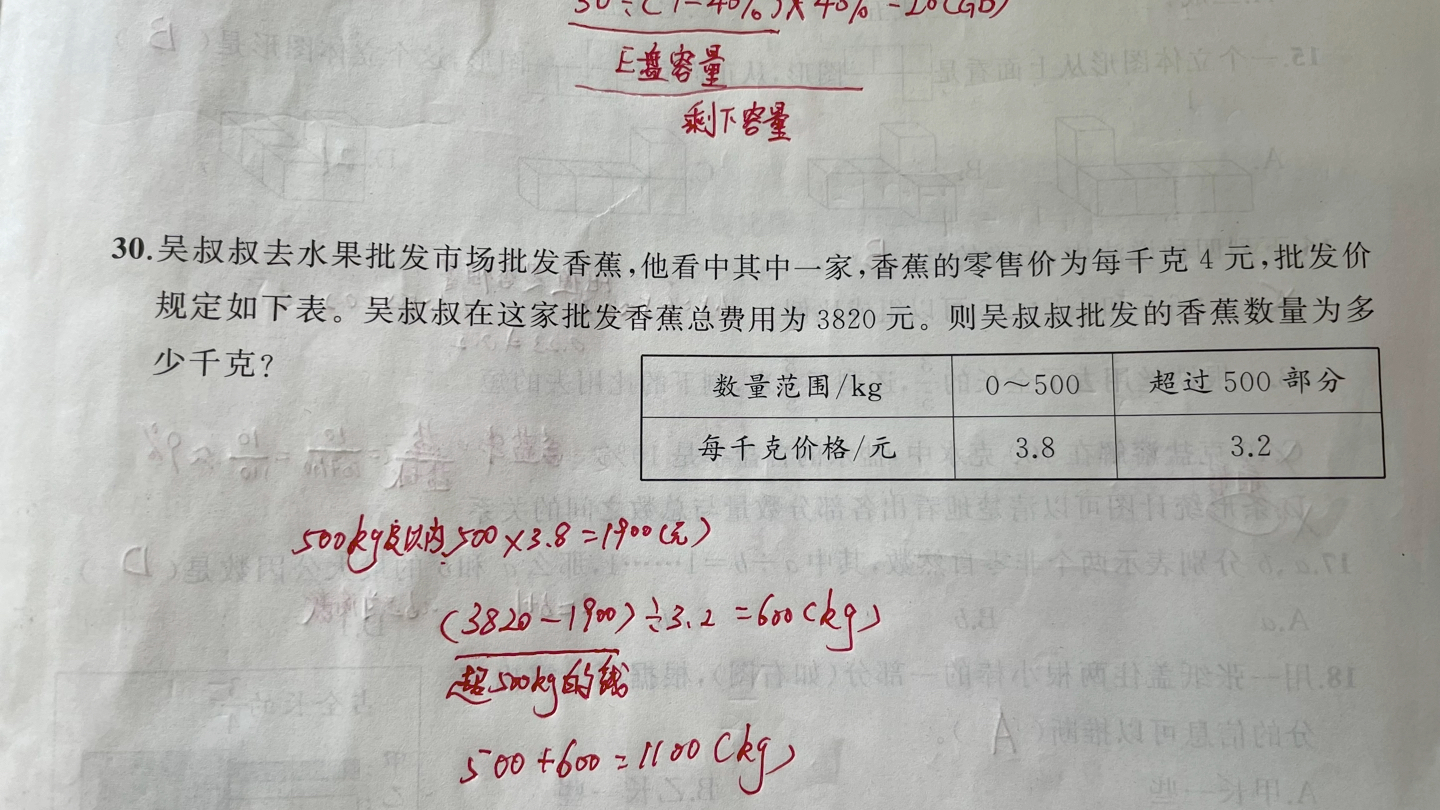 30÷(1-40%)×40%=20(GB)
E盘容量
剩下容量
30.吴叔叔去水果批发市场批发香蕉,他看中其中一家,香蕉的零售价为每千克4元,批发价
规定如下表。吴叔叔在这家批发香蕉总费用为3820元。则吴叔叔批发的香蕉数量为多
少千克?
数量范围/kg 0～500 超过500部分
每千克价格/元 3.8 3.2
500kg及以内 500×3.8=1900(元)
(3820-1900)÷3.2=600(kg)
超500kg的钱
500+600=1100(kg)